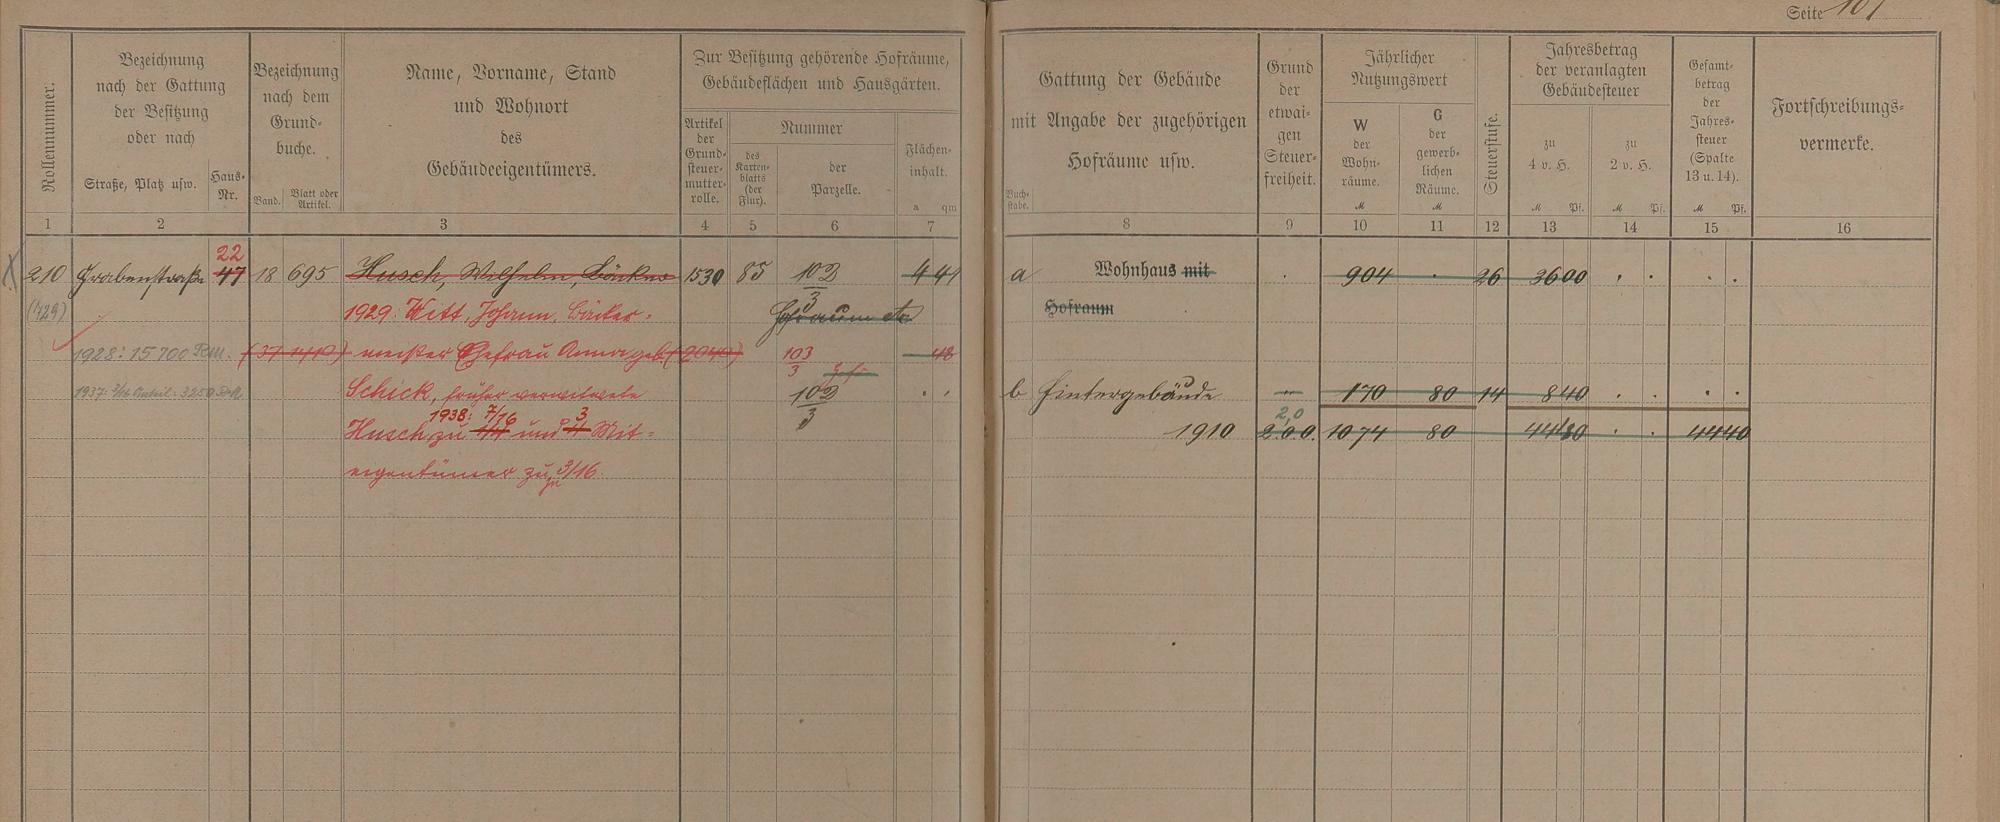 Seite 107
Rollennummer.
Bezeichnung
nach der Gattung
der Besitzung
oder nach
Straße, Platz usw.
Haus-
Nr.
Bezeichnung
nach dem
Grund-
buche.
Band.
Blatt oder
Artikel.
Name, Vorname, Stand
und Wohnort
des
Gebäudeeigentümers.
Zur Besitzung gehörende Hofräume,
Gebäudeflächen und Hausgärten.
Artikel
der
Grund-
steuer-
mutter-
rolle.
Nummer
des
Karten-
blatts
(der
Flur).
der
Parzelle.
Flächen-
inhalt.
a qm
Gattung der Gebäude
mit Angabe der zugehörigen
Hofräume usw.
Buch-
stabe.
Grund
der
etwai-
gen
Steuer-
freiheit.
Jährlicher
Nutzungswert
W
der
Wohn-
räume.
M
G
der
gewerb-
lichen
Räume.
M
Steuerstufe.
Jahresbetrag
der veranlagten
Gebäudesteuer
zu
4 v. H.
M Pf.
zu
2 v. H.
M Pf.
Gesamt-
betrag
der
Jahres-
steuer
(Spalte
13 u. 14).
M Pf.
Fortschreibungs-
vermerke.
1 2 3 4 5 6 7 8 9 10 11 12 13 14 15 16
22
210 Grabenstraße 47 18 695 Husch, Wilhelm, Bäcker 1530 85 102/3 4 41 a Wohnhaus mit 904 . 26 36 00 . . . .
(429) 1929: Witt, Johann, Bäcker- Hofraum etc Hofraum
1928: 15 700 Rm. (37 1410) meister Ehefrau Anna geb. (2040) 103/3 48
1937: Anteil: 3250 Schick, früher verwitwete 102/3 . . b Hintergebäude — 170 80 14 8 40 . . . .
1938: 7/16 3 2,0
Husch zu und Mit- 1910 2.00. 1074 80 44 40 . . 44 40
eigentümer zu 3/16.
zu